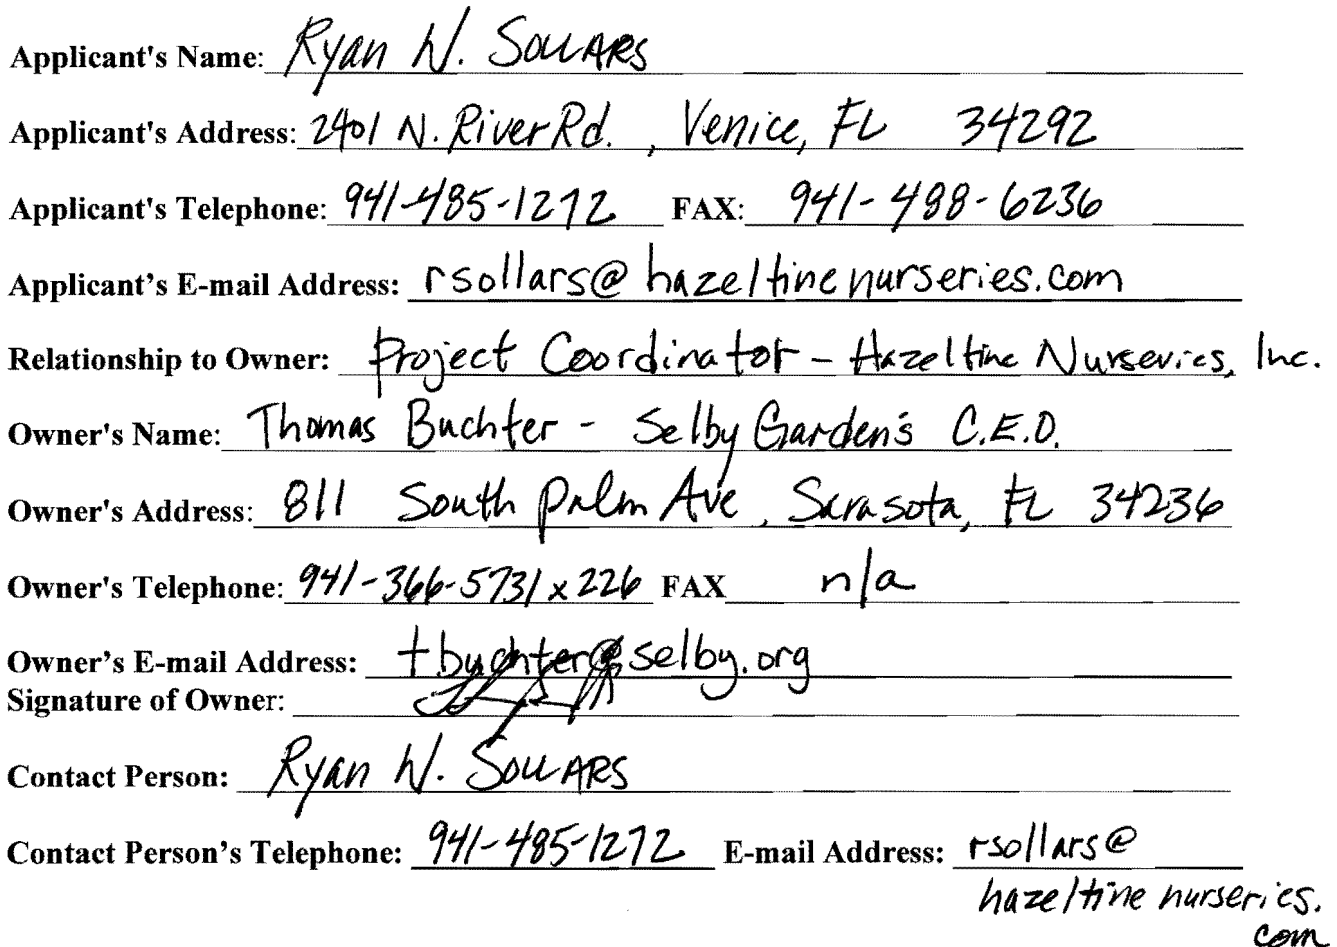 Applicant's Name: Ryan W. Sollars
Applicant's Address: 2401 N. River Rd. , Venice, FL 34292
Applicant's Telephone: 941-485-1272 FAX: 941-488-6236
Applicant's E-mail Address: rsollars@hazeltinenurseries.com
Relationship to Owner: Project Coordinator - Hazeltine Nurseries, Inc.
Owner's Name: Thomas Buchter - Selby Garden's C.E.O.
Owner's Address: 811 South Palm Ave, Sarasota, FL 34236
Owner's Telephone: 941-366-5731 x 226 FAX n/a
Owner's E-mail Address: tbuchter@selby.org
Signature of Owner:
Contact Person: Ryan W. Sollars
Contact Person's Telephone: 941-485-1272 E-mail Address: rsollars@
hazeltinenurseries.
com